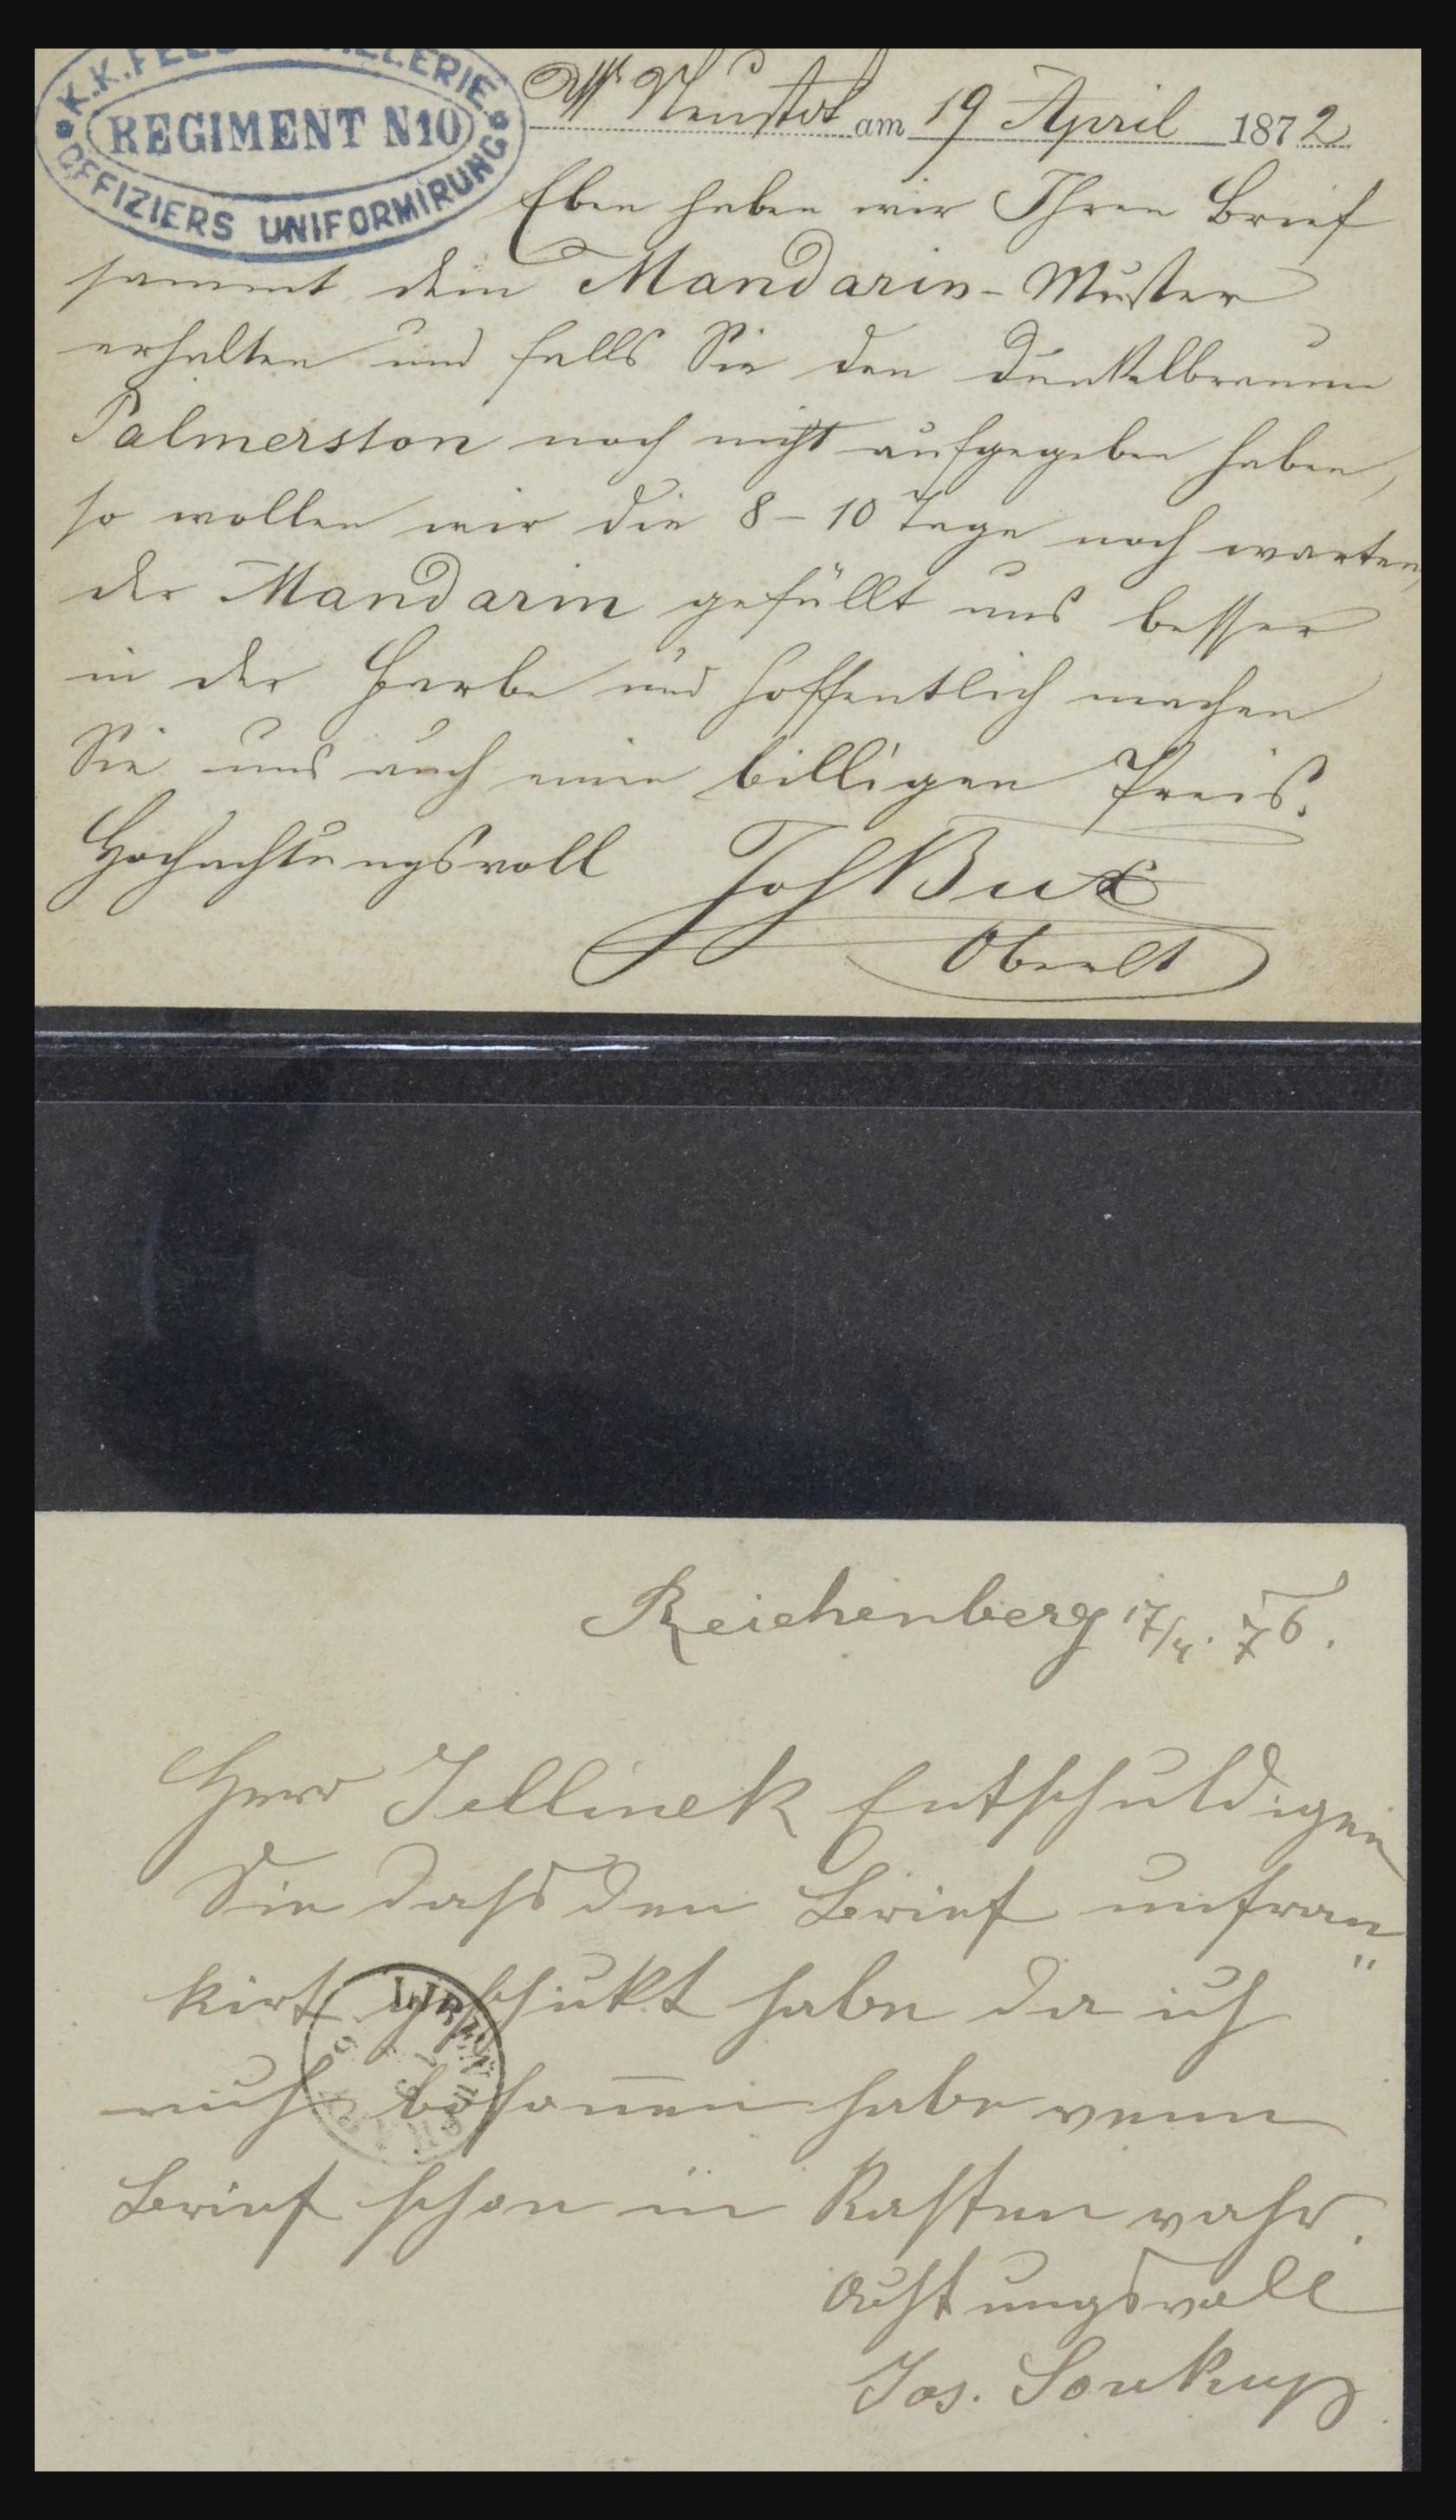 K.K. FELD ARTILLERIE
REGIMENT N10
OFFIZIERS UNIFORMIRUNG
Wr Neustdt am 19 April 1872
Eben haben wir Ihren Brief
sammt dem Mandarin-Muster
erhalten und falls Sie den dunkelbraunen
Palmerston noch nicht aufgegeben haben,
so wollen wir die 8 – 10 Tage noch warten,
der Mandarin gefällt uns besser
in der Farbe und hoffentlich machen
Sie uns auch einen billigen Preis.
Hochachtungsvoll Joh Bux
Oberlt
Reichenberg 17/4. 76.
Herr Jellinek Entschuldigen
Sie dahs den Brief unfran"
kirt geschikt habe da ich
mich besonnen habe wenn
Brief schon in Kasten wahr.
Achtungsvoll
Jos. Soukup